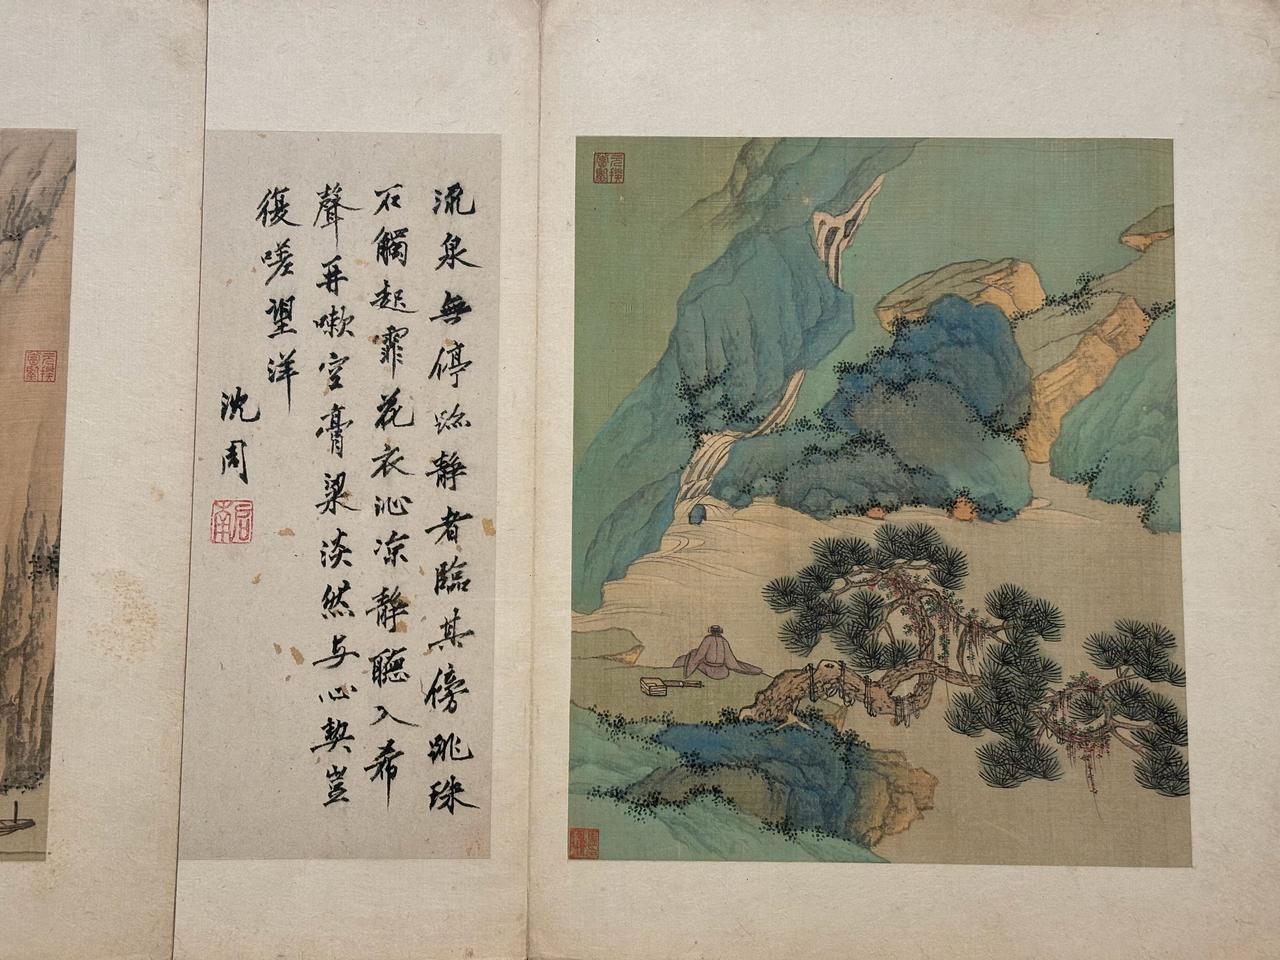 流泉無停跡靜者臨其傍跳珠
石觸起霏花衣沁涼靜聽入希
聲再嗽空膏粱淡然与心契豈
復嗟望洋
沈周
启南